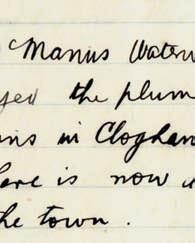 McManus Water
yed the plum
ns in Cloghan
here is now
the town.